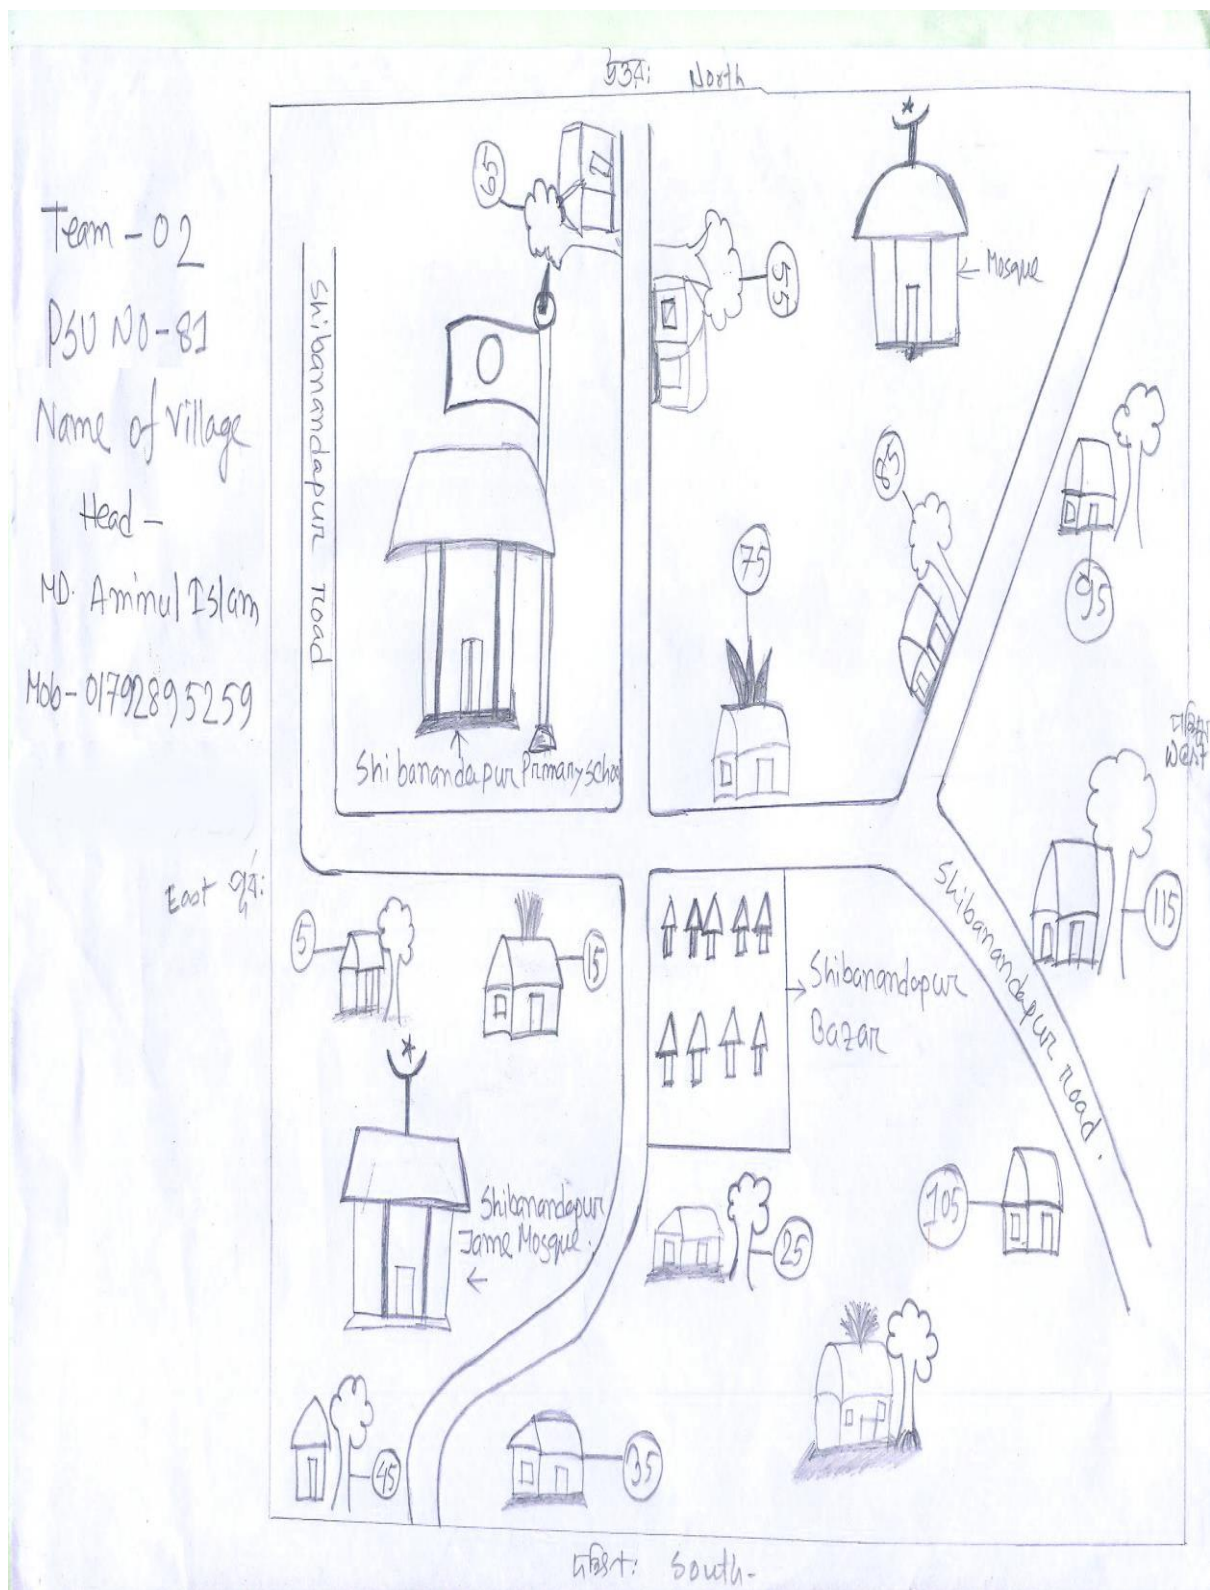 উত্তর: North
Team - 02
PSU NO - 81
Name of village
Head -
MD. Aminul Islam
Mob - 01792895259
65
55
← Mosque
Shibanandapur Road
85
95
75
Shibanandapur Primary School
West
East পূর্ব:
5
15
Shibanandapur
Bazar
Shibanandapur Road.
115
Shibanandapur
Jame Mosque.
←
25
105
45
35
দক্ষিণ: South-